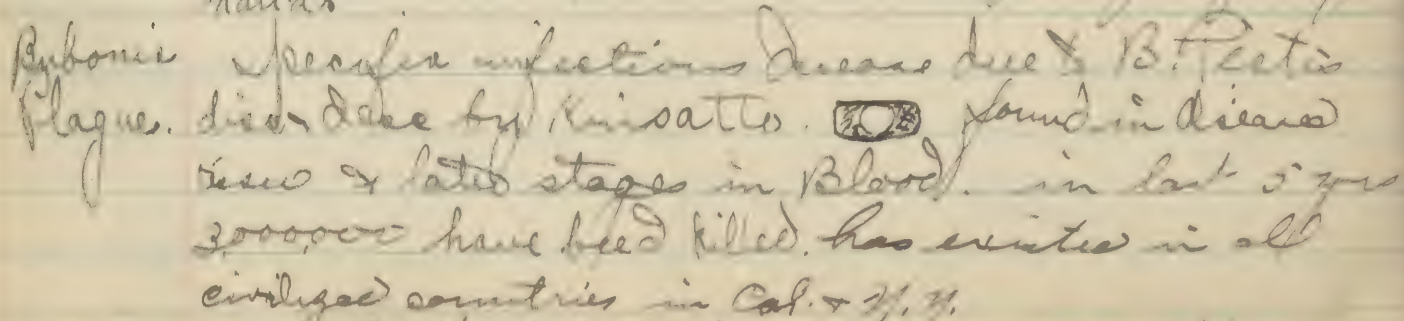 Bubonic Specific infectious disease due to B. Pestis
Plague. disc by Kinsatto. found in disease
& later stages in Blood. in last 5 yrs
3,000,000 have beed killed. has existed in all
civilized countries in Cal. & N.Y.